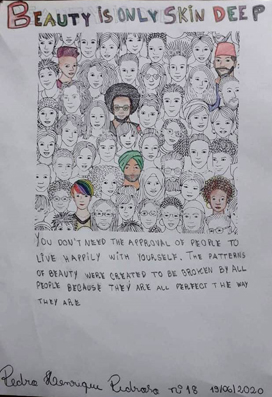 BEAUTY IS ONLY SKIN DEEP
YOU DON'T NEED THE APPROVAL OF PEOPLE TO
LIVE HAPPILY WITH YOURSELF. THE PATTERNS
OF BEAUTY WERE CREATED TO BE BROKEN BY ALL
PEOPLE BECAUSE THEY ARE ALL PERFECT THE WAY
THEY ARE
Pedro Henrique Pedroso nº 18 19/06/2020